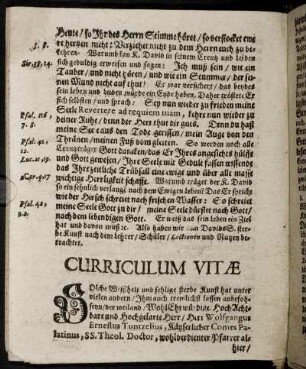 Heute / so Ihr des Herrn Stimme höret / so verstocket ewe
re hertzen nicht: Verziehet nicht zu dem Herrn euch zu be-
kehren. Warumb kan K. David in seinem Creutz und leiden
sich gedultig erweisen und sagen: Ich muß seyn / wie ein
Tauber / und nicht hören / und wie ein Stummer / der sei-
nen Mund nicht auf thut? Er war versichert / das beydes
sein leben und leiden würde ein Ende haben. Daher tröstet Er
sich selbsten / und sprach: Sey nun wieder zu frieden meine
Seele Revertere ad requiem tuam, kehre nun wieder zu
deiner Ruhe / denn der Herr thut dir guts. Denn du hast
meine Seele aus dem Tode gerissen / mein Auge von den
Thränen / meinen Fuß vom gleiten. So werden noch alle
Creutzträger Gott dancken / das Er Ihres angesichts hülffe
und Gott gewesen / Ihre Seele mit Gedult fassen wissende
das Ihr zeitliche Trübsall eine ewige und über alle maße
wichtige Herrligkeit schaffe. Warumb träget der K. David
so ein sehnlich verlangē nach dem Ewigen leben? Das Er spricht
wie der Hirsch schreiet nach frischen Wasser: So schreiet
meine Seele Gott zu dir / meine Seele dürstet nach Gott /
nach dem lebendigen Gott. Er weiß das sein leben ein Ziel
hat und davon müsse. Also haben wir Davids Ster-
be Kunst nach dem lehrer / Schüler / Lectionen und Nutzen be-
trachtet.
CURRICULUM VITÆ
SOlche Weißheit und selige sterbe Kunst hat unter
vielen andern / Ihm auch trewlichst lassen anbefohl-
sein / der weiland / WohlEhrwürdige / Hoch Acht-
bare und Hochgelarte Herr / Herr Wolfgangus
Ernestius Tuntzelius, Käyserlicher Comes Pa-
latinus, SS. Theol. Doctor, wohlverdienter Pfarrer al-
hier /
Psal. 116 /
7. 8.
Psal. 42 /